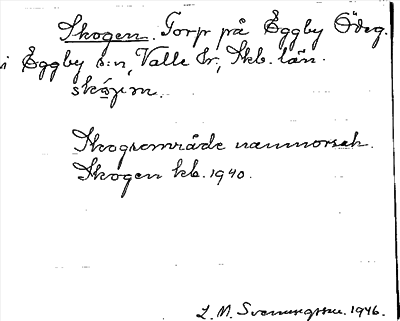 Skogen. Torp på Eggby Ödeg.
i Eggby s:n, Valle hr, Skb. län.
Skogsområde namnorsak.
Skogen kb. 1940.
L. M. Svenungsson. 1946.